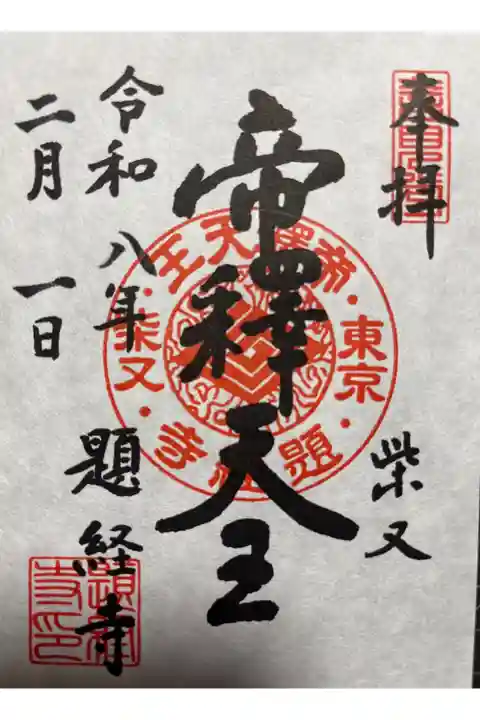 奉拝
柴又
帝釋天王
令和八年
二月一日
題経寺
帝釋天王・東京・題経寺・柴又・